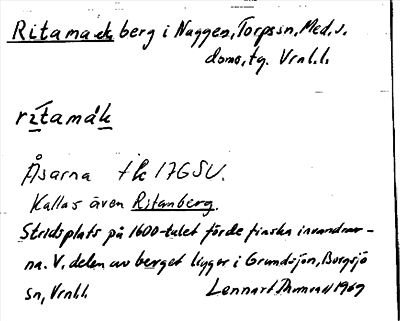 Ritamack berg i Naggen, Torpssn, Med.s.
doms, tg. Vrnl.l.
ritamák
Åsarna tk 17GSV.
Kallas även Ritanberg.
Stridsplats på 1600-talet förde finska invandrar-
na. V. delen av berget ligger i Grundsjön, Borgsjö
sn, Vrnl.l. Lennart 1969